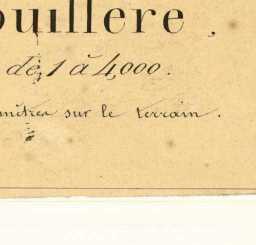 ouillère,
de 1 à 4,000.
mètres sur le terrain.